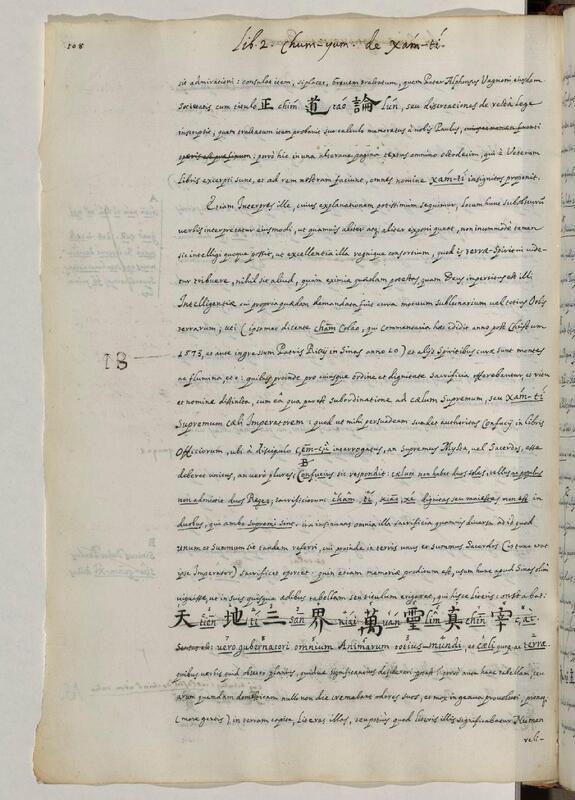 108
Lib. 2. Chum-yum. de Xám-tí.
sit admirationi: consulat item, si placet, brevem tractatum, quem Pater Alphonsus Vagnoni eiusdem
Societatis cum titulo 正 chím 道 taó 論 lún, seu dissertationes de recta lege
inscripsit; quam tractatum item probavit suo calculo memoratus à nobis Paulus,
porrò hic in una alterave pagina textus omnino octodecim, qui è Veterum
Libris excerpti sunt, et ad rem nostram faciunt, omnes nomine xám-tí insignitos proponit.
Etiam Interpres ille, cuius explanationem potissimum sequimur, locum hunc subobscuris
verbis interpretatur eiusmodi, ut quamvis aliter atq; aliter exponi queat, non incommodè tamen
sic intelligi quoque possit, ut excellentia illa regnique consortium, quod is terræ Spiritui vide-
tur tribuere, nihil sit aliud, quàm eximia quædam potestas quam Deus impertitus est illi
Intelligentiæ cui propria quædam demandata fuit cura motuum sublunarium vel totius Orbis
terrarum; uti (ipsomet dicente chām Colao, qui Commentaria hæc edidit anno post Christum
1573, et ante ingressum Patris Riccij in Sinas anno 10) et alijs Spiritibus curæ sunt montes
18
ac flumina, etc: quibus proinde pro cuiusque ordine et dignitate sacrificia offerebantur, et ritu
et nomine distincta, cum eâ quâ par est subordinatione ad cælum Supremum, seu xám-tí
Supremum cæli Imperatorem: quod ut mihi persuadeam suadet authoritas Confucij in libris
Officiorum, ubi à discipulo çem-çu interrogatus, an Supremus Mysta, vel Sacerdos, esse
B
deberet unicus, an verò plures, Confucius sic respondit: cælum non habet duos soles, tellus ac populus
non admittit duos Reges; sacrificiorum chām, tí, kiāo, xé dignitas seu maiestas non est in
duobus, qui ambo supremi sint. ita insinuans omnia illa sacrificia quamvis diversa ad id quod
unum et Summum sit tandem referri, cui proinde in terris unus et summus Sacerdos (is tunc erat
ipse Imperator) sacrificet oportet: quin etiam memoriæ proditum est, usum hunc apud Sinas olim
viguisse, ut in suis quisque ædibus tabellam seu titulum erigeret, qui his è literis constabat:
天 tiēn 地 tí 三 sān 界 kiái 萬 ván 靈 lîm 真 chīn 宰 çài
vero gubernatori omnium Animarum totius mundi, et Cæli quoq; ac terræ.
quibus verbis quid obsecro planius, quidve significantius desiderari possit? porrò
(more gentis) in terram capite, literas illas, seu potius quod literis illis significabatur Numen
veli-